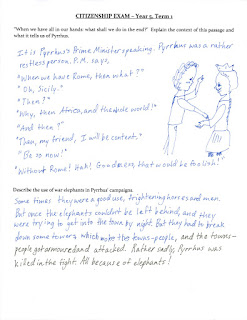 CITIZENSHIP EXAM – Year 5, Term 1
"When we have all in our hands: what shall we do in the end?" Explain the context of this passage and
what it tells us of Pyrrhus.
It is Pyrrhus's Prime Minister speaking. Pyrrhus was a rather
restless person. P.M. says,
"When we have Rome, then what??"
"Oh, Sicily."
"Then?"
"Why, then Africa, and the whole world!"
"And then?"
"Then, my friend, I will be content."
"Be so now!"
"Without Rome! Hah! Goodness, that would be foolish!"
Describe the use of war elephants in Pyrrhus' campaigns.
Some times they were a good use, frightening horses and men.
But once the elephants couldn't be left behind, and they
were trying to get into the town by night. But they had to break
down some towers, which woke the towns-people, and the towns-
people got armoured and attacked. Rather sadly, Pyrrhus was
killed in the fight. All because of elephants!